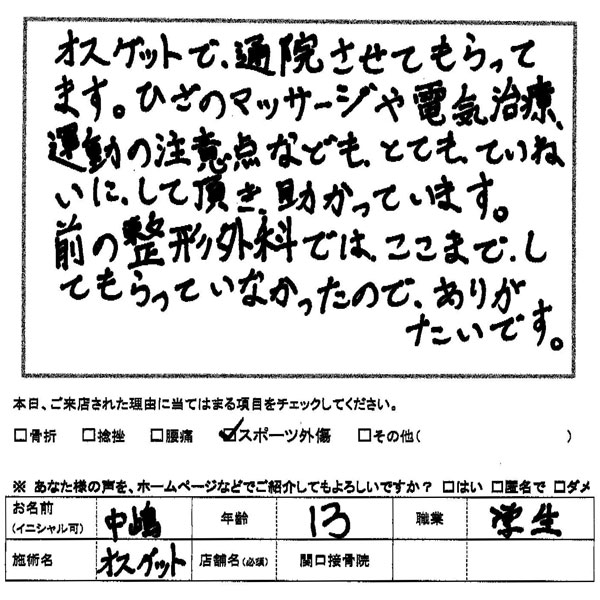 オスゲットで、通院させてもらって
ます。ひざのマッサージや電気治療、
運動の注意点なども、とても、ていね
いに、して頂き、助かっています。
前の整形外科では、ここまで、し
てもらっていなかったので、ありが
たいです。
本日、ご来店された理由に当てはまる項目をチェックしてください。
□骨折 □捻挫 □腰痛 ☑スポーツ外傷 □その他( )
※ あなた様の声を、ホームページなどでご紹介してもよろしいですか？ □はい □匿名で □ダメ
お名前 (イニシャル可) 中嶋 年齢 13 職業 学生
施術名 オスゲット 店舗名(必須) 関口接骨院